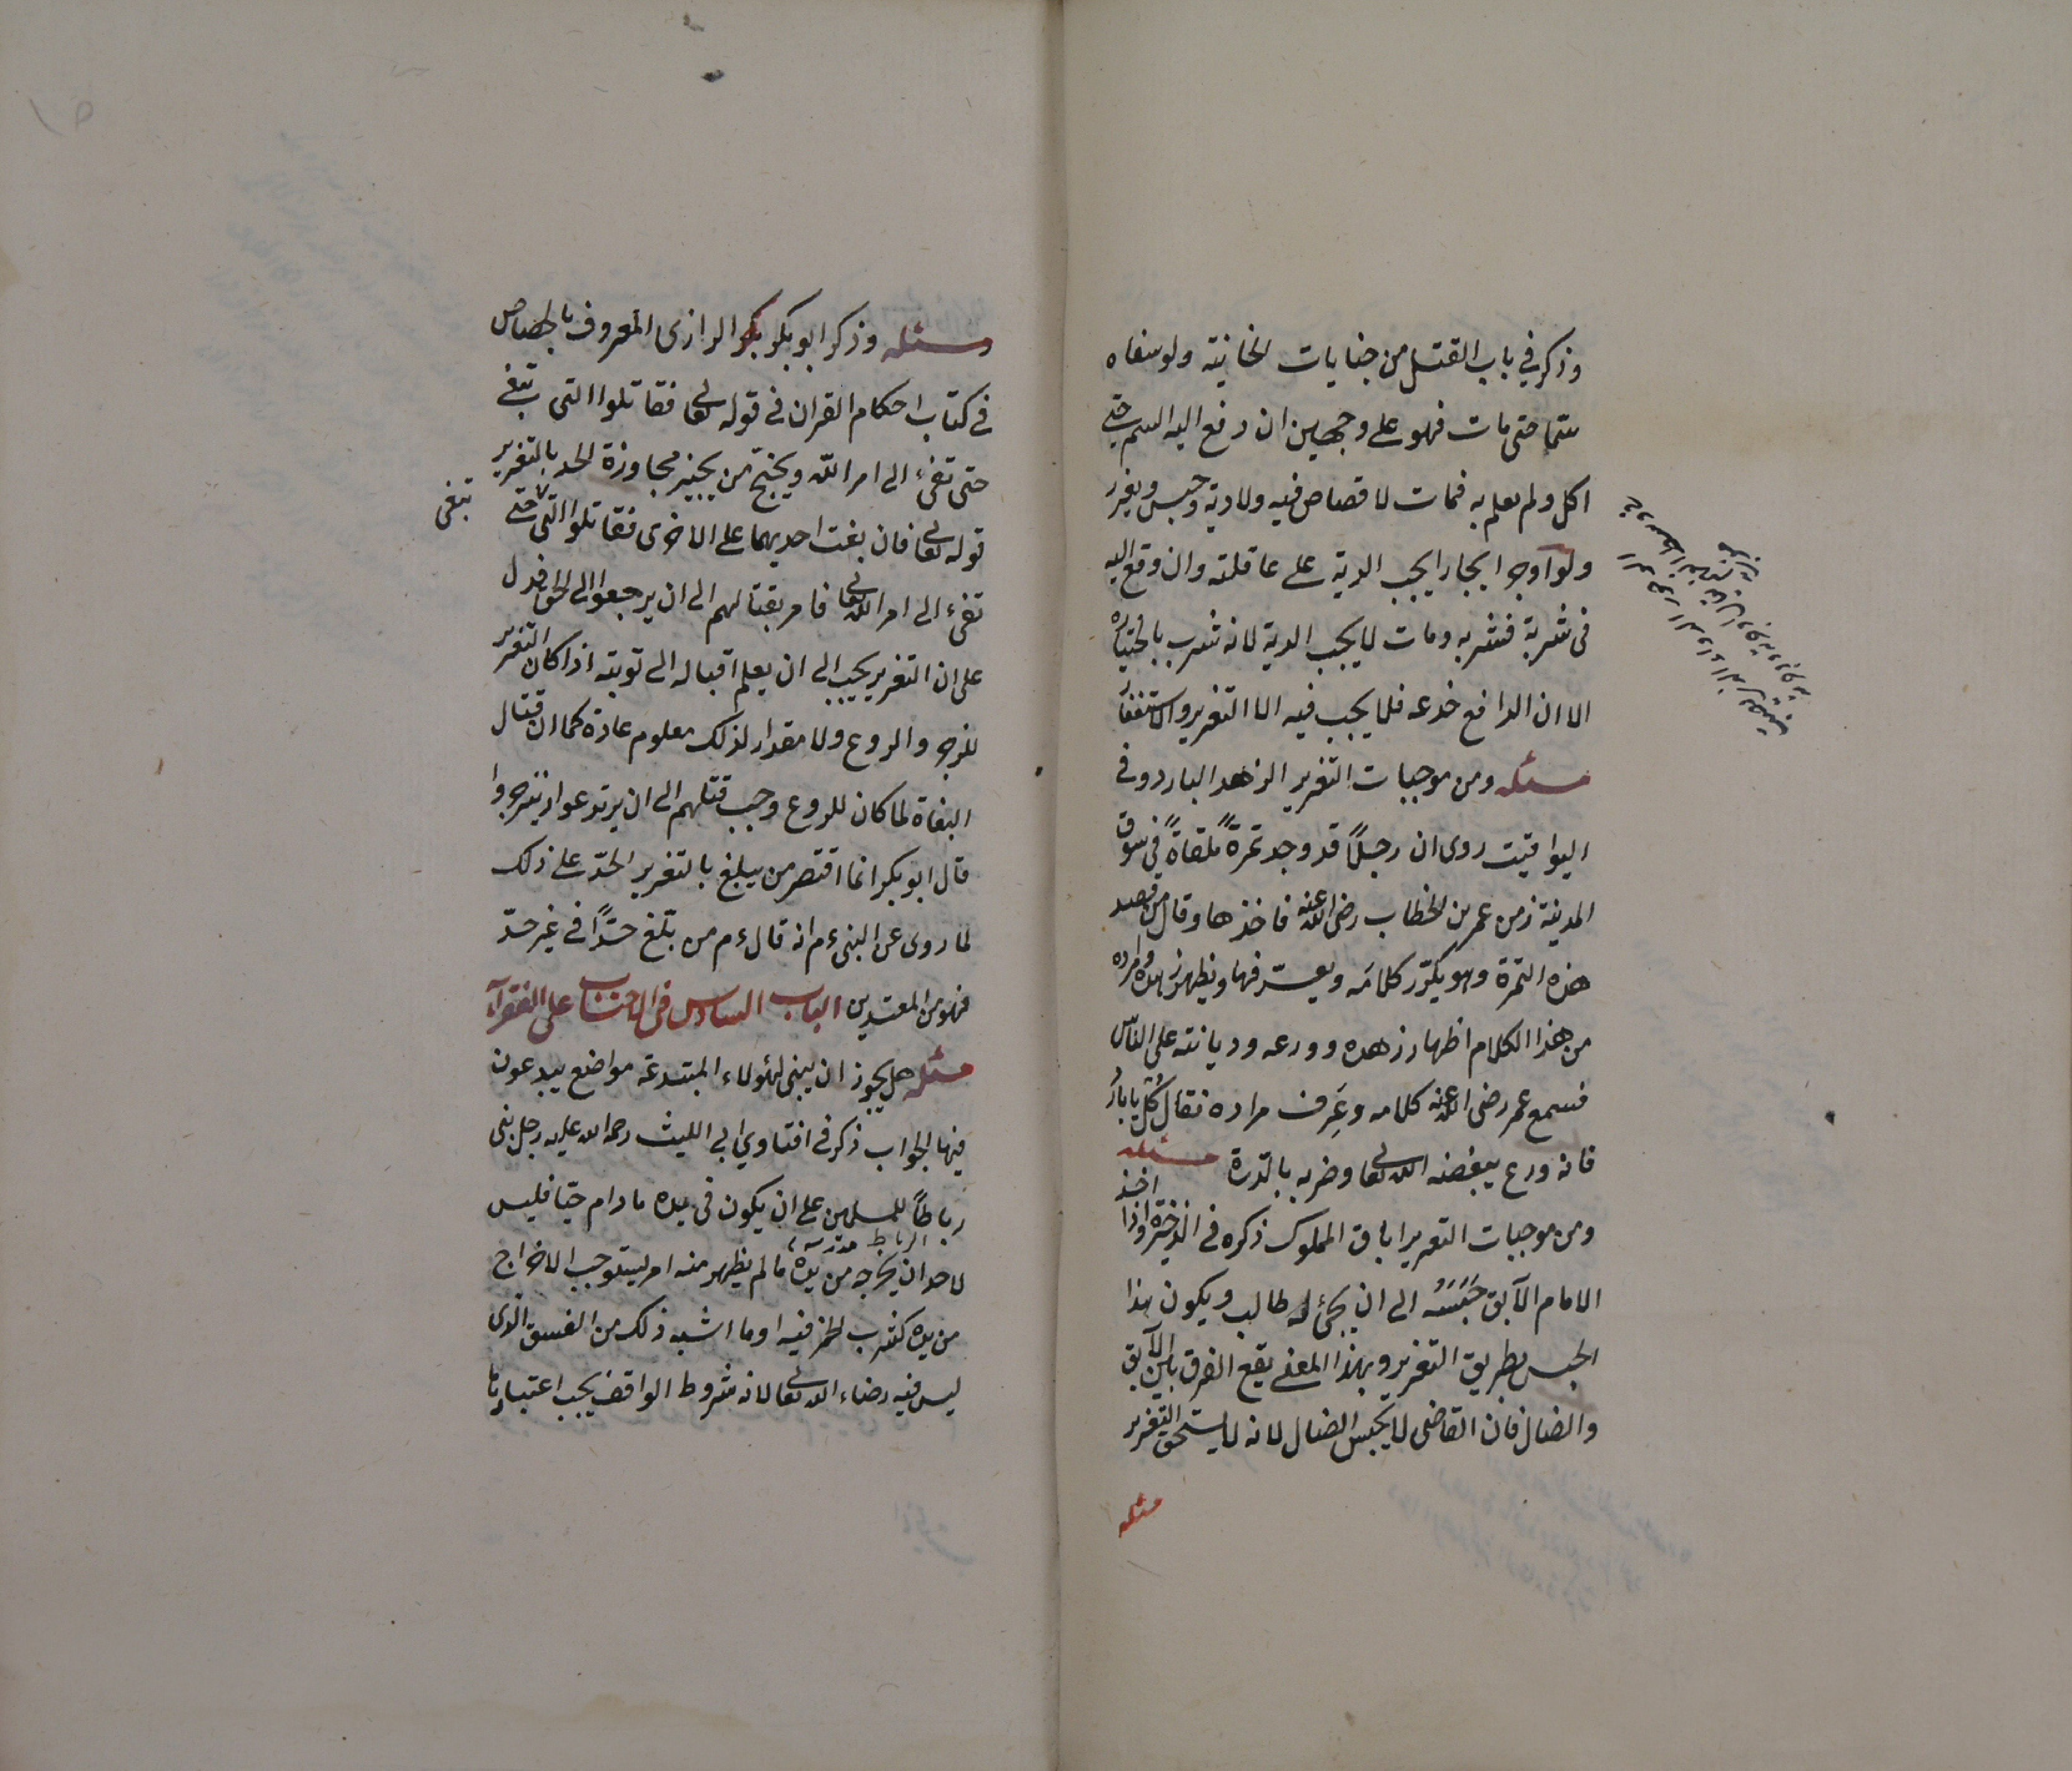 وذكر في باب القتل من جنايات الخانية ولو سقاه
سما حتى مات فهو على وجهين ان دفع اليه السم حتى
اكل ولم يعلم به فمات لا قصاص فيه ولا دية وحبس ويعزر
ولو اوجر ايجارا يجب الدية على عاقلته وان دفع اليه
في شربة فشربه ومات لا يجب الدية لانه شرب باختياره
الا ان الدافع خدعه فلا يجب فيه الا التعزير والاستغفار
مسئله ومن موجبات التعزير الزهد البارد وفي
اليواقيت روى ان رجلًا قد وجد تمرةً ملقاةً في سوق
المدينة زمن عمر بن الخطاب رضى الله عنه فاخذها وقال من فقد
هذه التمرة وهو يكرّر كلامَه ويعرّفها ويظهر زهده ومراده
من هذا الكلام اظهار زهده وورعه وديانته على الناس
فسمع عمر رضى الله عنه كلامه وعَرِف مراده فقال كُل يا باردُ
فانه ورع يبغضه الله تعالى وضربه بالدرة مسئله
ومن موجبات التعزير اباق المملوك ذكره في الذخيرة واذا اخذ
الامام الآبق حَبَسَهُ الى ان يجئ له طالب ويكون هذا
الحبس بطريق التعزير وبهذا المعنى يقع الفرق بين الآبق
والضال فان القاضى لا يحبس الضال لانه لا يستحق التعزير
مسئله
مسئله وذكر ابو بكر بكر الرازى المعروف بالجصاص
في كتاب احكام القران في قوله تعالى فقاتلوا التى تبغى
حتى تفئ الى امر الله ويحتج من يجيز مجاوزة الحد بالتعزير
قوله تعالى فان بغت احديهما على الاخرى فقاتلوا التى حتى
تبغى
تفئ الى امر الله تعالى فامر بقتالهم الى ان يرجعوا الى الحق فدل
على ان التعزير يجب الى ان يعلم اقباله الى توبته اذا كان التعزير
للزجر والردع ولا مقدار لذلك معلوم عادة كما ان قتال
البغاة لما كان للردع وجب قتلهم الى ان يرتدعوا وينزجروا
قال ابو بكر انما اقتصر من يبلغ بالتعزير الحدّ على ذلك
لما روى عن النبى ءم انه قال ءم من بلّغ حدًّا في غير حدّ
فهو من المعتدين الباب السادس في الاحتساب على الفقرآء
مسئله هل يجوز ان يبنى لهؤلاء المبتدعة مواضع يبدعون
فيها الجواب ذكر في افتاوي ابي الليث رحمه الله عليه رجل بنى
رباطًا للمسلمين على ان يكون في يده مادام حيّا فليس
الرباط مدرسه
لاحد ان يخرجه من يده ما لم يظهر منه امر يستوجب الاخراج
من يده كشرب الخمر فيه او ما اشبه ذلك من الفسق الّذى
ليس فيه رضاء الله تعالى لانه شروط الواقف يجب اعتبارها